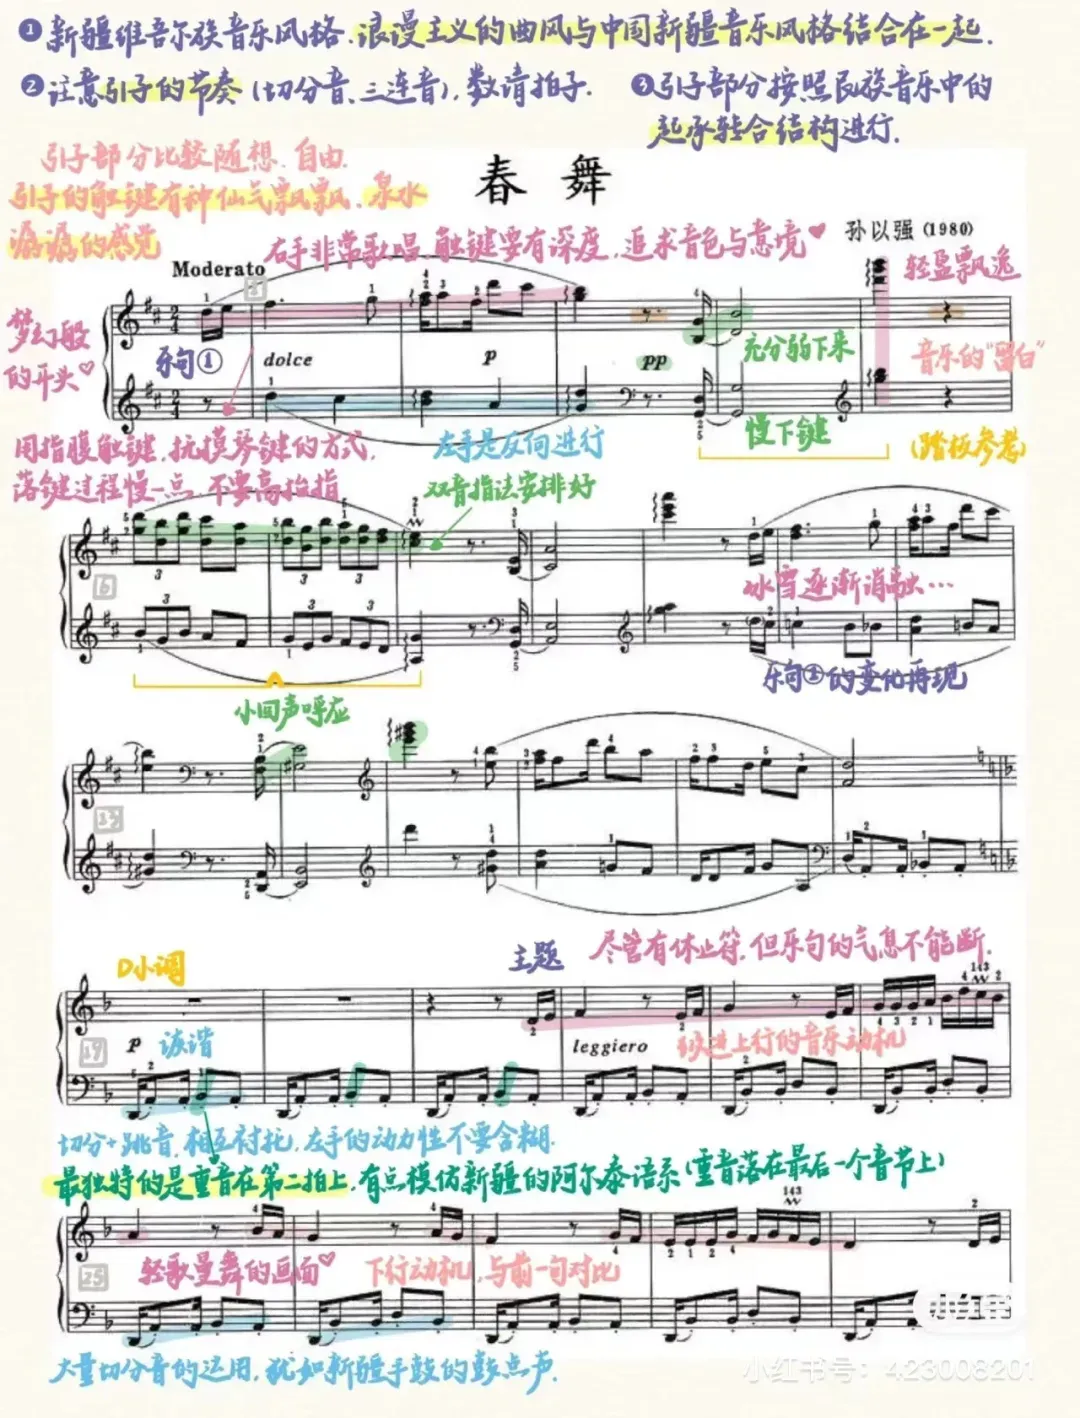 ❶新疆维吾尔族音乐风格.浪漫主义的曲风与中国新疆音乐风格结合在一起.
❷注意引子的节奏(切分音、三连音),数请拍子.
❸引子部分按照民族音乐中的
起承转合结构进行.
引子部分比较随想.自由.
引子的触键有种仙气飘飘、泉水
潺潺的感觉
春舞
孙以强(1980)
右手非常歌唱,触键要有深度,追求音色与意境♥
轻盈飘逸
Moderato
梦幻般
的开头♡
乐句①
dolce
p
pp
充分弱下来
音乐的“留白”
用指腹触键,抚摸琴键的方式,
落键过程慢一点,不要高抬指
左手是反向进行
慢下键
(踏板参考)
双音指法安排好
6
3 3
3 3
冰雪逐渐消融…
乐句①的变化再现
小回声呼应
13
D小调
主题
尽管有休止符,但乐句的气息不能断.
19
p
诙谐
leggiero
级进上行的音乐动机
143
切分+跳音,相互衬托,左手的动力性不要含糊.
最独特的是重音在第二拍上,有点模仿新疆的阿尔泰语系(重音落在最后一个音节上)
143
25
轻歌曼舞的画面♡
下行动机,与前一句对比
大量切分音的运用,犹如新疆手鼓的鼓点声.
小红书
小红书号:423008201